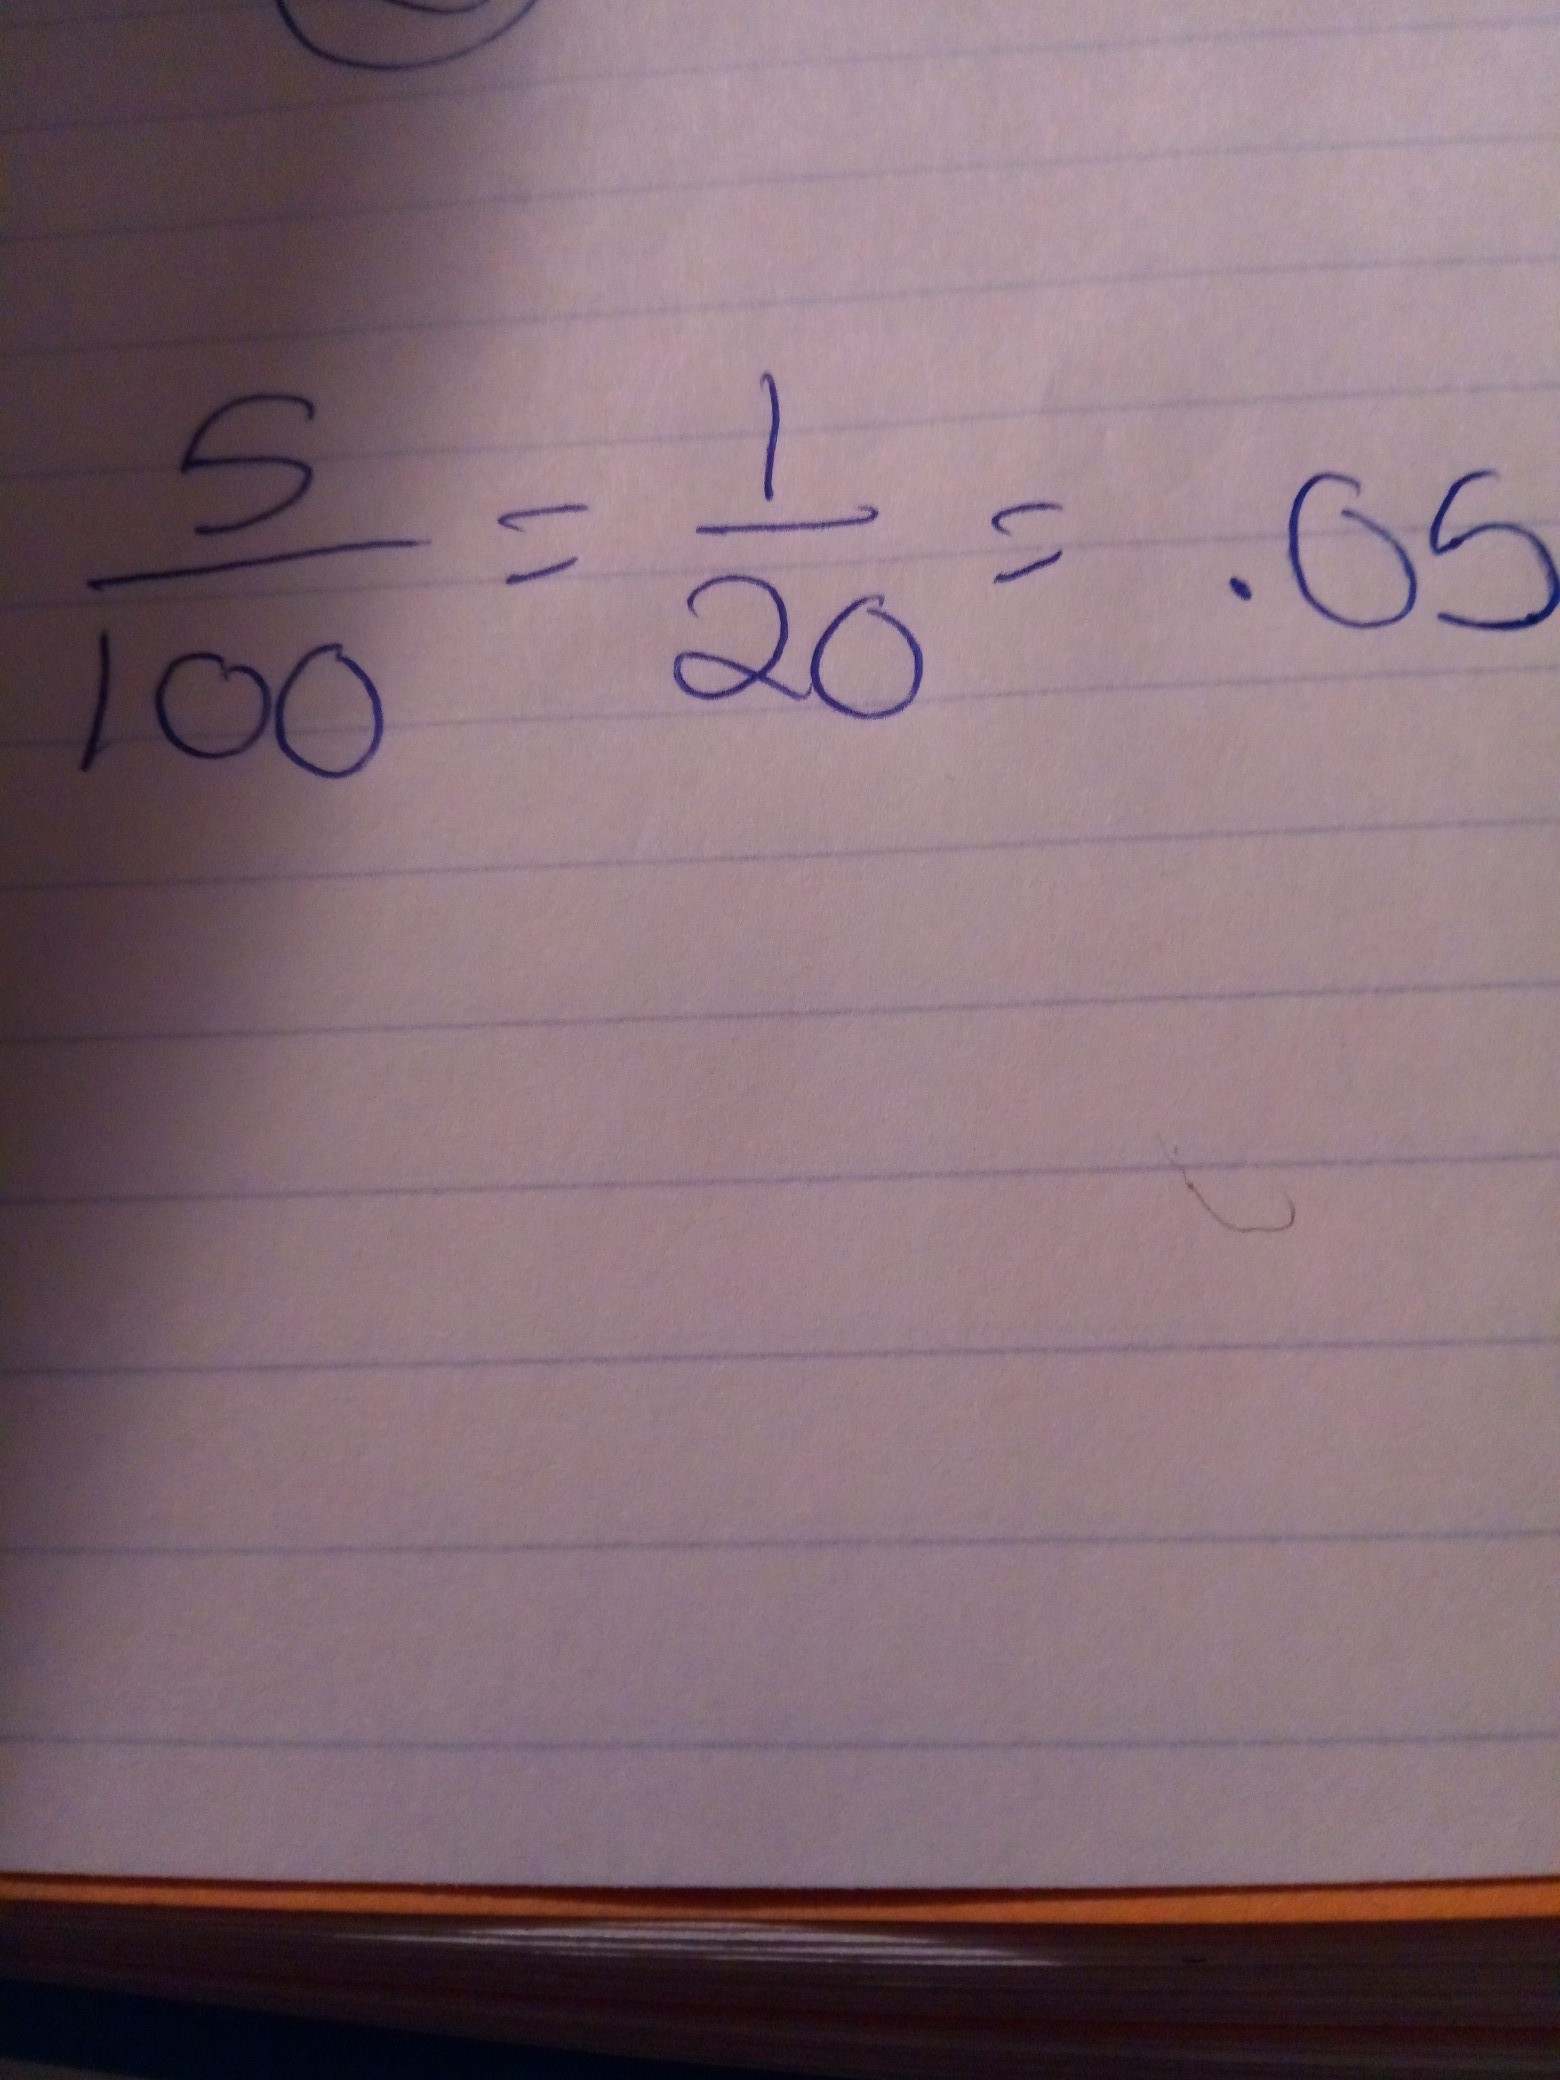 5/100 = 1/20 = .05